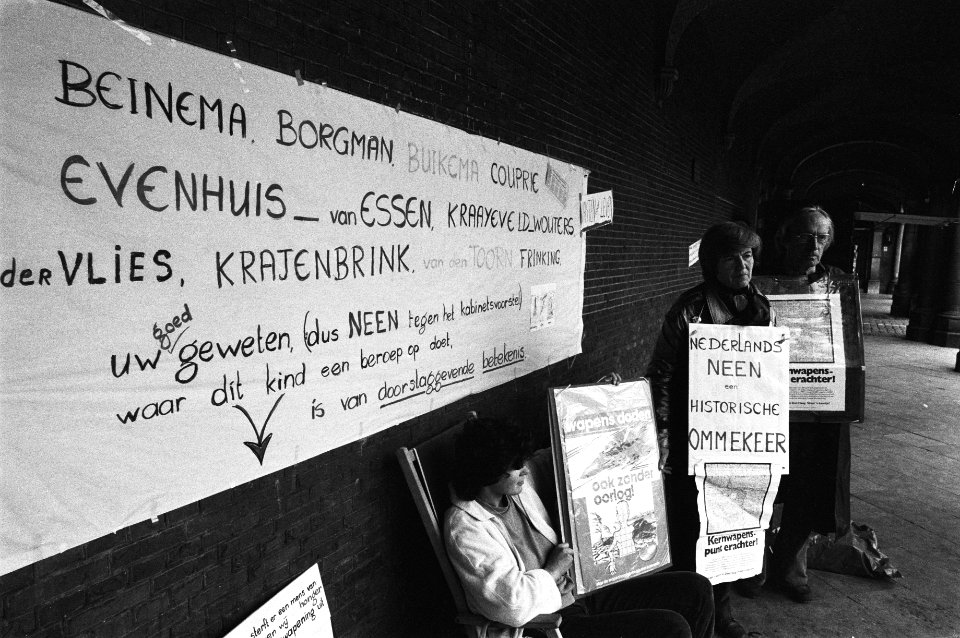 BEINEMA. BORGMAN. BUIKEMA COUPRIE
EVENHUIS_ van ESSEN, KRAAYEVELD_WOUTERS
der VLIES, KRAJENBRINK. van den TOORN FRINKING.
uw goed geweten, (dus NEEN tegen het kabinetsvoorstel)
waar dit kind een beroep op doet,
is van doorslaggevende betekenis.
wapens doden
ook zonder
oorlog!
NEDERLANDS
NEEN
een
HISTORISCHE
OMMEKEER
Kernwapens-
punt erachter!
Kernwapens-
erachter!
sterft er een mens van
honger